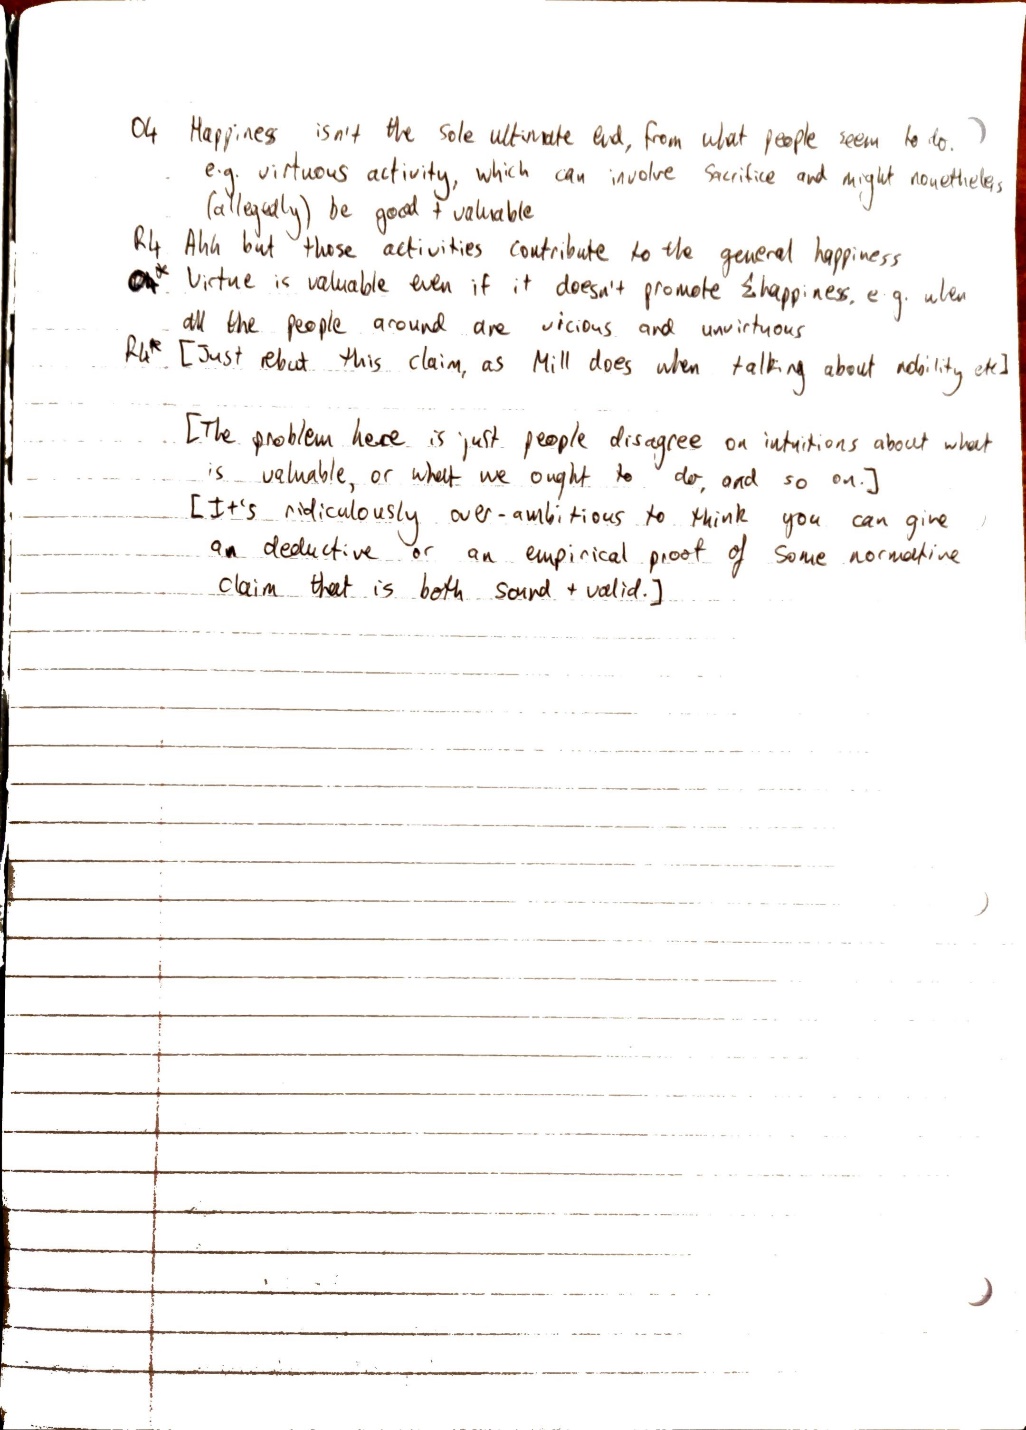 O4 Happiness isn't the sole ultimate end, from what people seem to do.
e.g. virtuous activity, which can involve sacrifice and might nonetheless
(allegedly) be good + valuable
R4 Ahh but those activities contribute to the general happiness
O4* Virtue is valuable even if it doesn't promote Σhappiness, e.g. when
all the people around are vicious and unvirtuous
R4* [Just rebut this claim, as Mill does when talking about nobility etc]
[The problem here is just people disagree on intuitions about what
is valuable, or what we ought to do, and so on.]
[It's ridiculously over-ambitious to think you can give
an deductive or an empirical proof of some normative
claim that is both sound + valid.]